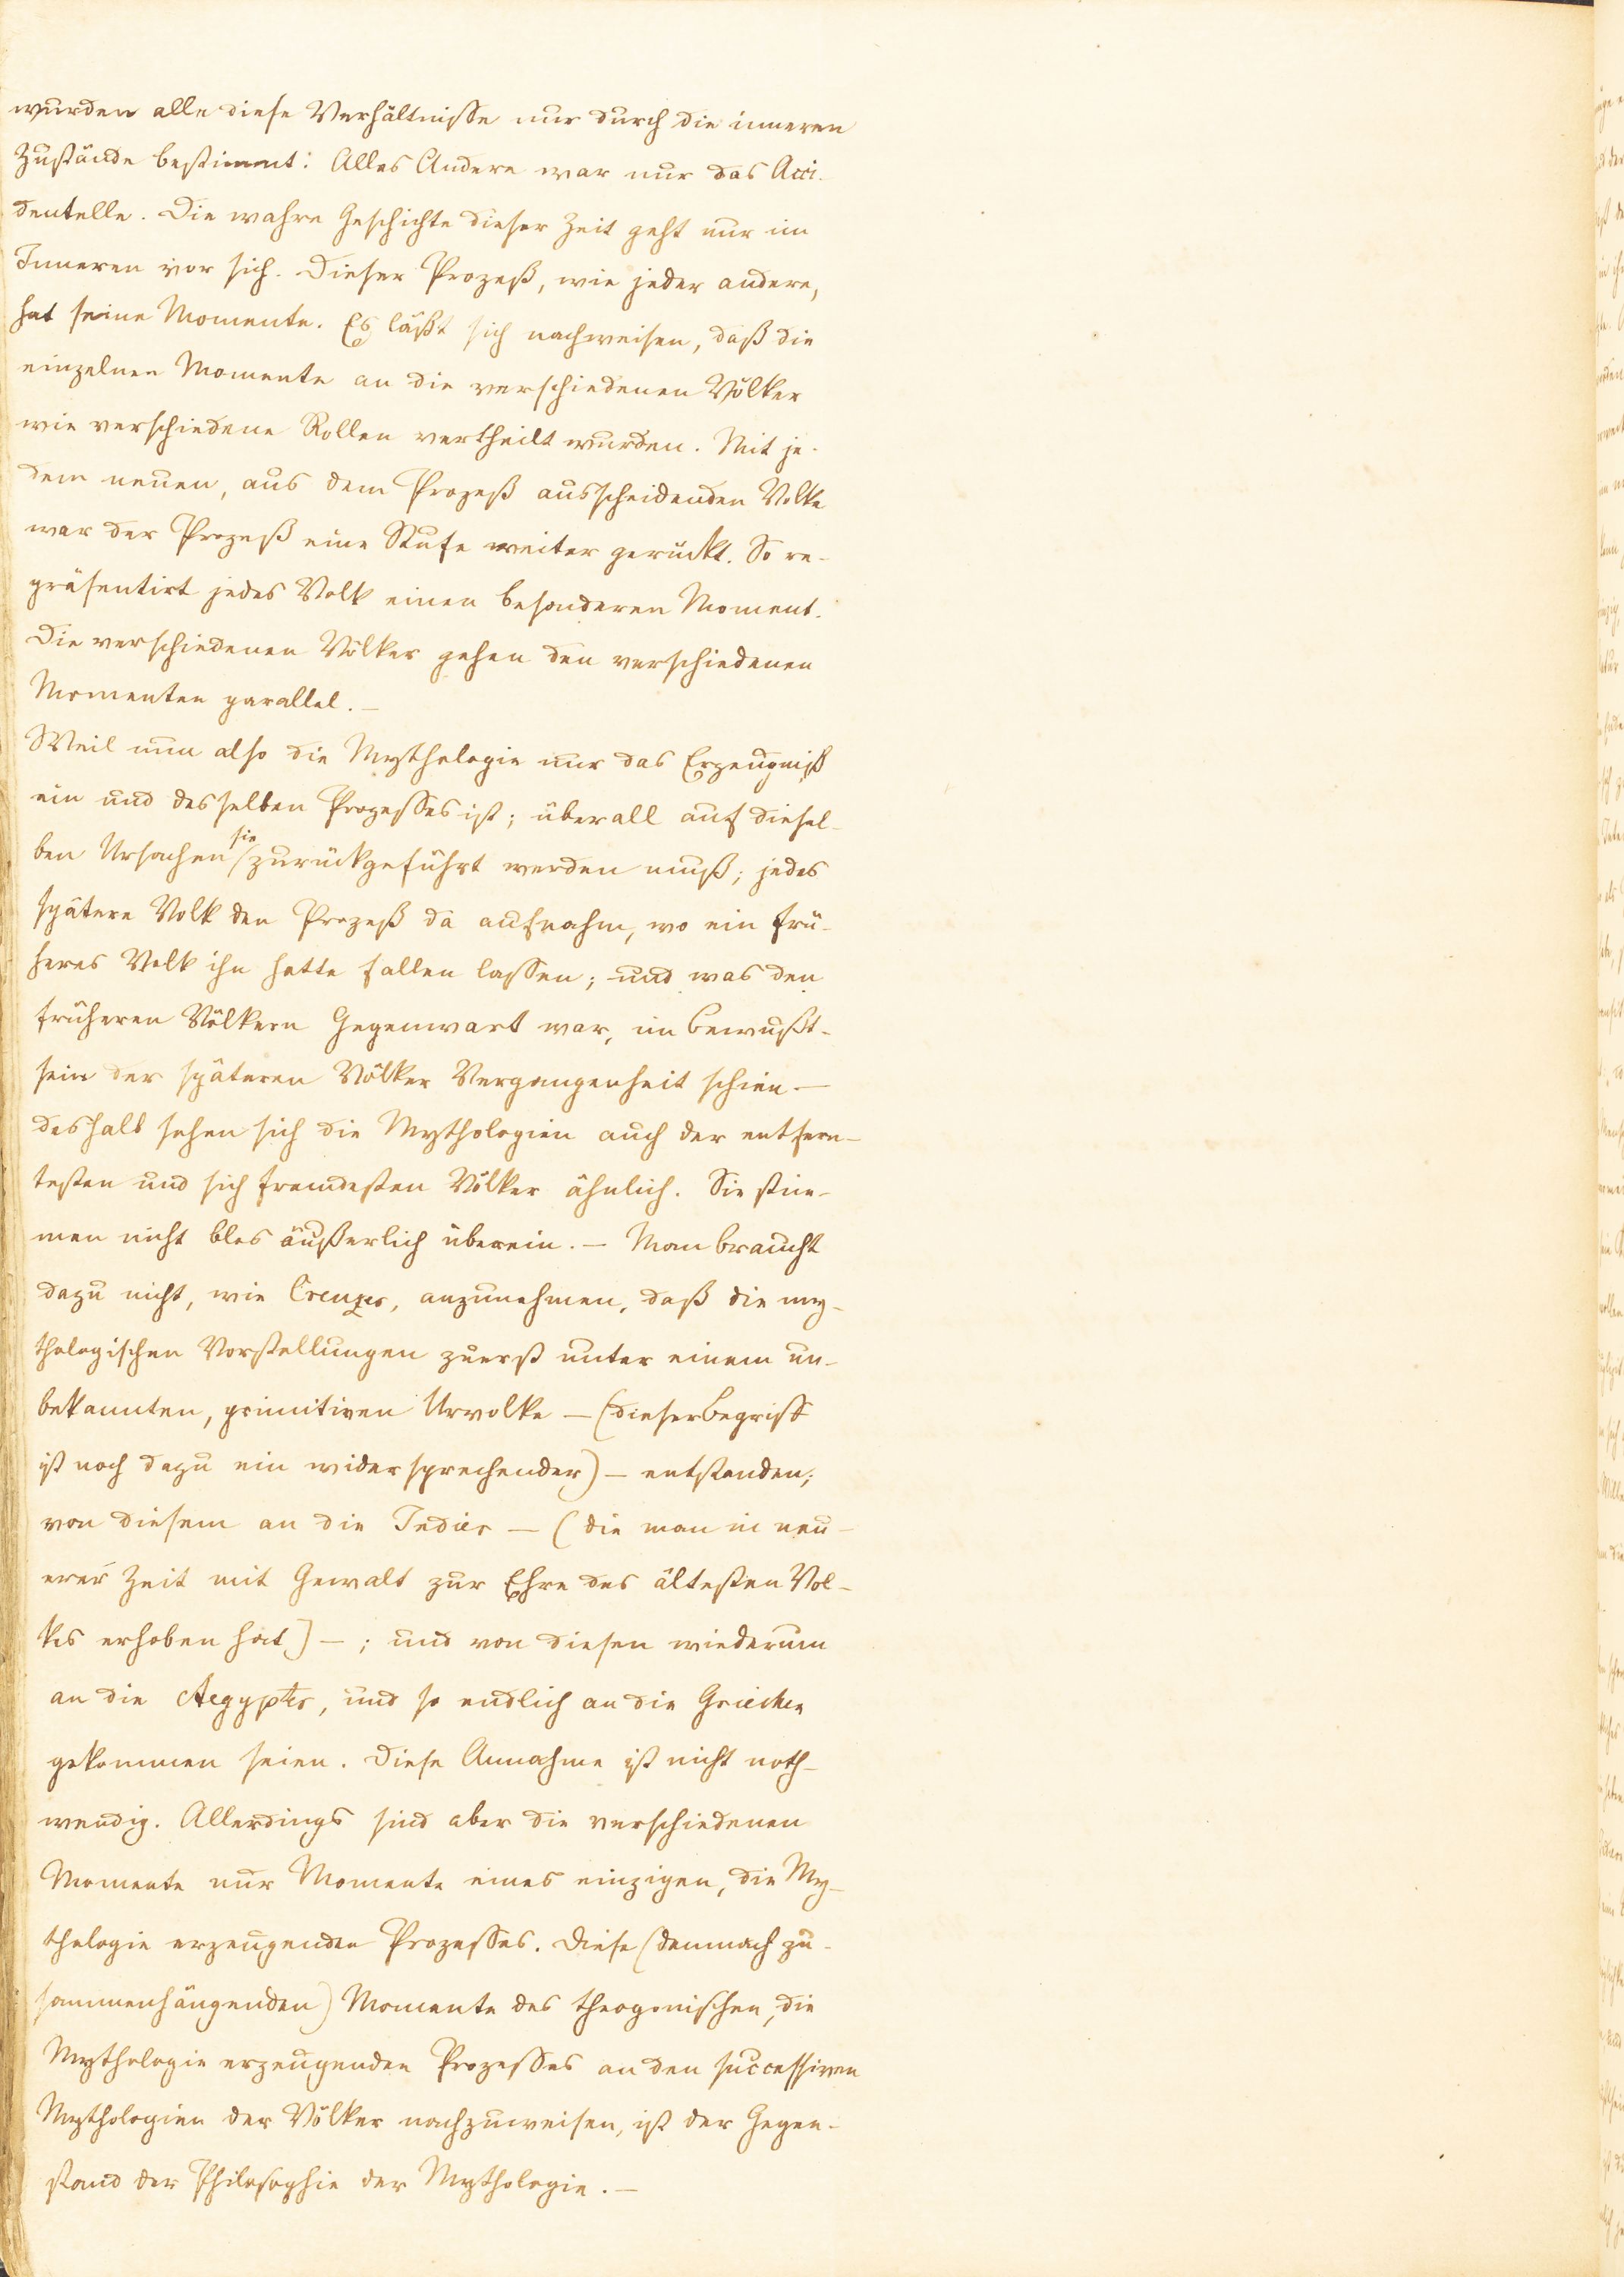 wurden alle diese Verhältnisse nur durch die inneren
Zustände bestimmt: Alles Andere war nur das Acci-
dentelle. Die wahre Geschichte dieser Zeit geht nur im
Inneren vor sich. Dieser Prozeß, wie jeder andere,
hat seine Momente. Es läßt sich nachweisen, daß die
einzelnen Momente an die verschiedenen Völker
wie verschiedene Rollen vertheilt wurden. Mit je-
dem neuen, aus dem Prozeß ausscheidenden Volke
war der Prozeß eine Stufe weiter gerückt. So re-
präsentirt jedes Volk einen besonderen Moment.
Die verschiedenen Völker gehen den verschiedenen
Momenten parallel. —
Weil nun also die Mythologie nur das Erzeugniß
ein und desselben Prozesses ist; überall auf diesel-
ben Ursachen sie zurückgeführt werden muß; jedes
spätere Volk den Prozeß da aufnahm, wo ein frü-
heres Volk ihn hatte fallen lassen; und was den
früheren Völkern Gegenwart war, im Bewußt-
sein der späteren Völker Vergangenheit schien —
deshalb sehen sich die Mythologien auch der entfern-
testen und sich fremdesten Völker ähnlich. Sie stim-
men nicht blos äußerlich überein. — Man braucht
dazu nicht, wie Creuzer, anzunehmen, daß die my-
thologischen Vorstellungen zuerst unter einem un-
bekannten, primitiven Urvolke — (dieser Begriff
ist noch dazu ein widersprechender) — entstanden;
von diesem an die Indier — (die man in neu-
erer Zeit mit Gewalt zur Ehre des ältesten Vol-
kes erhoben hat) — ; und von diesen wiederum
an die Aegypter, und so endlich an die Griechen
gekommen seien. Diese Annahme ist nicht noth-
wendig. Allerdings sind aber die verschiedenen
Momente nur Momente eines einzigen, die My-
thologie erzeugenden Prozesses. Diese (demnach zu-
sammenhängenden) Momente des theogonischen, die
Mythologie erzeugenden Prozesses an den successiven
Mythologien der Völker nachzuweisen, ist der Gegen-
stand der Philosophie der Mythologie. —